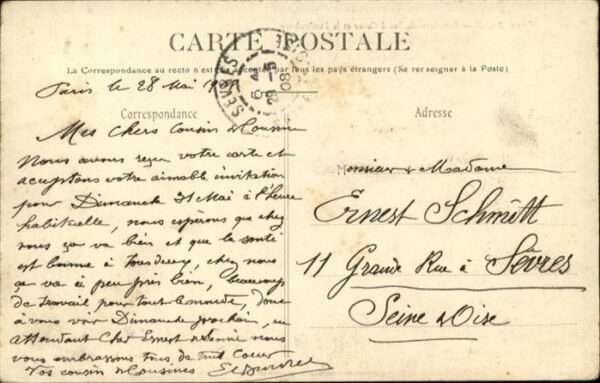 CARTE POSTALE
La Correspondance au recto n'est pas acceptée par tous les pays étrangers (Se renseigner à la Poste)
Paris le 28 Mai
SÈVRES
Correspondance
Adresse
Mes chers Cousin & Cousine
Nous avons reçu votre carte et
acceptons votre aimable invitation
pour Dimanche 31 Mai à l'heure
habituelle, nous espérons que chez
vous ça va bien et que la santé
est bonne à tous, chez nous
ça va à peu près bien, beaucoup
de travail pour tout le monde, donc
à vous voir Dimanche prochain, en
attendant Cher Ernest et Fannie nous
vous embrassons tous de tout Coeur
Vos cousin & Cousines
Monsieur & Madame
Ernest Schmitt
11 Grande Rue à Sèvres
Seine & Oise